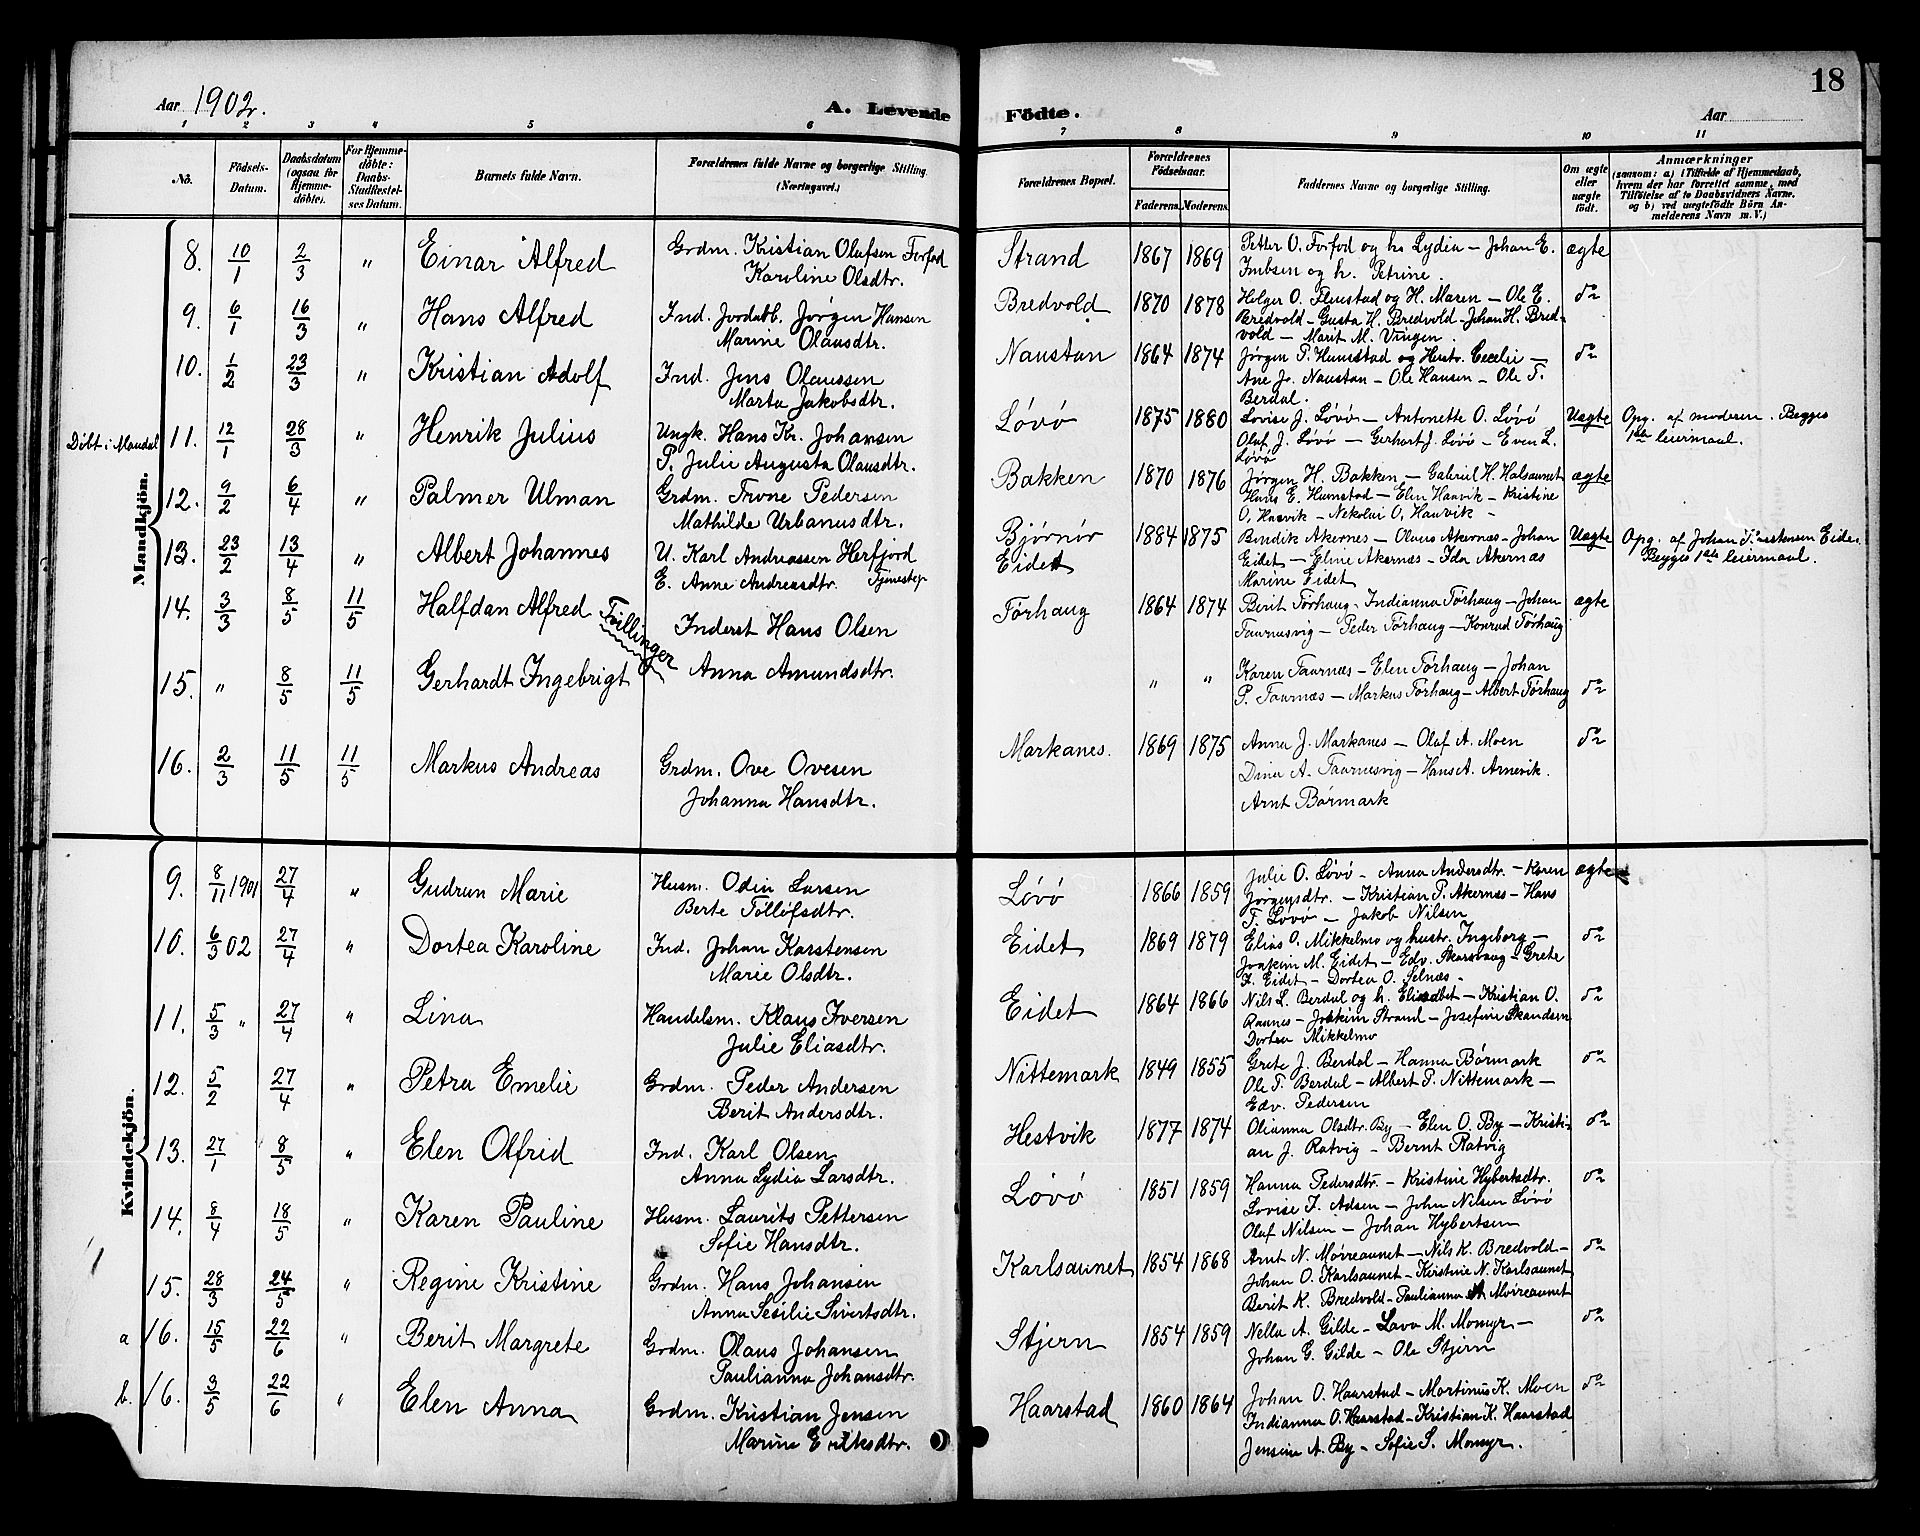 18
Aar 1902. A. Levende Födte. Aar
1 2 3 4 5 6 7 8 9 10 11
No. Födsels-Datum. Daabsdatum (ogsaa for Hjemmedöbte). For Hjemmedöbte: Daabs-Stadfæstelses Datum. Barnets fulde Navn. Forældrenes fulde Navne og borgerlige Stilling. (Næringsvei.) Forældrenes Bopæl. Forældrenes Födselsaar. Faderens. Moderens. Faddernes Navne og borgerlige Stilling. Om ægte eller uægte födt. Anmærkninger (saasom: a) i Tilfælde af Hjemmedaab, hvem der har forrettet samme, med Tilföielse af to Daabsvidners Navne. og b) ved uægtefödte Börn Anmelderens Navn m. V.)
Mandkjön.
8. 10/1 2/3 " Einar Alfred Grdm. Kristian Olafsen Forfod Strand 1867 1869 Petter O. Forfod og h. Lydia – Johan E. ægte
Karoline Olsdtr. Imbsen og h. Petrine.
9. 6/1 16/3 " Hans Alfred Ind. Jordabb. Jørgen Hansen Bredvold 1870 1878 Helger O. Flenstad og H. Maren – Ole E. do
Marine Olausdtr. Bredvold – Gusta H. Bredvold – Johan H. Bred-
vold – Marit M. Vingen.
10. 1/2 23/3 " Kristian Adolf Ind. Jens Olaussen Naustan 1864 1874 Jørgen P. Humstad og Hustr. Cecelie – do
Marta Jakobsdtr. Ane J. Naustan – Ole Hansen – Ole T.
Berdal.
Döbt i Mandal 11. 12/1 28/3 " Henrik Julius Ungk. Hans Kr. Johansen Løvø 1875 1880 Lovise J. Løvø – Antonette O. Løvø Uægte Opg. af moderen. Begges
P. Julie Augusta Olausdtr. Oluf J. Løvø – Gerhart J. Løvø – Even L. 1ste leiermaal.
Løvø
12. 9/2 6/4 " Palmer Ulman Grdm. Trone Pedersen Bakken 1870 1876 Jørgen H. Bakken – Gabriel H. Halsaunet ægte
Mathilde Urbanusdtr. Hans E. Humstad – Elen Haavik – Kristine
O. Haavik – Nekolai O. Haavik –
13. 23/2 13/4 " Albert Johannes U. Karl Andreassen Herfjord Bjørnør 1884 1875 Bendik Akernes – Olaus Akernes – Johan Uægte Opg. af Johan Eide.
E. Anne Andreasdtr. Tjenestep Eidet Eidet – Eline Akernes – Ida Akernes Begges 1ste leiermaal.
Marine Eidet
14. 3/3 8/5 11/5 Halfdan Alfred Tvillinger Inderst Hans Olsen Tørhaug 1864 1874 Berit Tørhaug – Indianna Tørhaug – Johan ægte
Taurnesvig – Peder Tørhaug – Konrad Tørhaug
15. " 8/5 11/5 Gerhardt Ingebrigt Anna Amundsdtr. " " Karen Taurnæs – Elen Tørhaug – Johan
P. Taurnæs – Markus Tørhaug – Albert Tørhaug do
16. 2/3 11/5 11/5 Markus Andreas Grdm. Ove Ovesen Markanes. 1869 1875 Anna J. Markanes – Olaf A. Moen do
Johanna Hansdtr. Dina A. Taurnesvig – Hans A. Arnevik.
Arnt Børmark
Kvindekjön.
9. 8/11 1901 27/4 " Gudrun Marie Husm. Odin Larsen Løvø 1866 1859 Julie O. Løvø – Anna Andersdtr. – Karen ægte
Berte Tolløfsdtr. Jørgensdtr. – Kristian P. Akernes – Hans
T. Løvø – Jakob Nilsen
10. 6/3 02 27/4 " Dortea Karoline Ind. Johan Karstensen Eidet 1869 1879 Elias O. Mikkelmo og hustr. Ingeborg – do
Marie Olsdtr. Joakim M. Eidet – Edv. Skarsvaag – Grete
F. Eidet – Dortea O. Selnæs.
11. 5/3 " 27/4 " Lina Handelsm. Klaus Iversen Eidet 1864 1866 Nils L. Berdal og h. Elisabet – Kristian O. do
Julie Eliasdtr. Raanes – Joakim Strand – Josefine Skandsen
Dortea Mikkelmo
12. 5/2 27/4 " Petra Emelie Grdm. Peder Andersen Nittemark 1849 1855 Grete J. Berdal – Hanna Børmark do
Berit Andersdtr. Ole T. Berdal – Albert P. Nittemark –
Edv. Pedersen
13. 27/1 8/5 " Elen Olfrid Ind. Karl Olsen Hestvik 1877 1874 Olianna Olsdtr. By – Elen O. By – Kristi- do
Anna Lydia Larsdtr. an J. Ratvig – Bernt Ratvig
14. 8/4 18/5 " Karen Pauline Husm. Laurits Pettersen Løvø 1851 1859 Hanna Pedersdtr. – Kristine Hybertsdtr. do
Sofie Hansdtr. Lovise F. Adsen – John Nilsen Løvø
Oluf Nilsen – Johan Hybertsen
15. 28/3 24/5 " Regine Kristine Grdm. Hans Johansen Karlsaunet 1854 1868 Arnt N. Moireaunet – Nils K. Bredvold – do
Anna Sesilie Sivertsdtr. Johan O. Karlsaunet – Kirstine N. Karlsaunet
Berit K. Bredvold – Paulianna Moireaunet
a 16. 15/5 22/6 " Berit Margrete Grdm. Olaus Johansen Stjern 1854 1859 Nella A. Gilde – Lava M. Momyr – do
Paulianna Johansdtr. Johan G. Gilde – Ole Stjern
b. 16. 3/5 22/6 " Elen Anna Grdm. Kristian Jensen Haarstad 1860 1864 Johan O. Haarstad – Martinus K. Moen do
Marine Eriksdtr. Indianna O. Haarstad – Kristian K. Haarstad
Jensine A. By – Sofie S. Momyr.